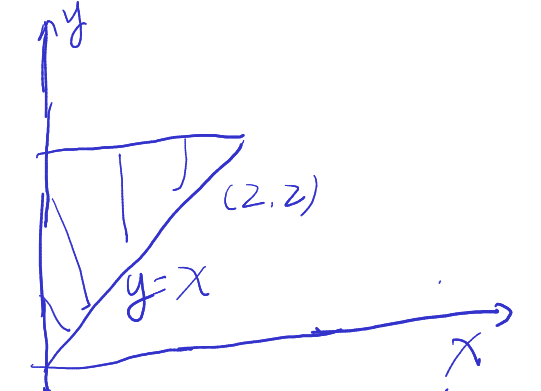 y
(2,2)
y=x
x